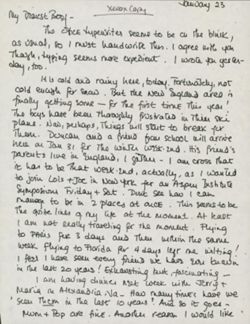 Xerox Copy
January 23
My Dearest Betty -
The office typewriters seem to be on the blink,
as usual, so I must handwrite this. I agree with you
though, typing seems more expedient. I wrote you yester-
day, too.
It is cold and rainy here, today. Fortunately, not
cold enough for snow. But the New England area is
finally getting some - for the first time this year!
The boys have been thoroughly frustrated in their ski
plans. Now, perhaps, things will start to break for
them. Duncan and a friend from school will arrive
here on Jan 31 for the winter week-end. His friend's
parents live in England, I gather - I am cross that
to has to be that week-end, actually, as I wanted
to join in New York for an Aspen Institute
Symposium Friday & Sat. Don't see how I can
manage to be in 2 places at once. This seems to be
the of my life at the moment. At least
I am not really travelling for the moment. Flying
to Paris for 3 days and then within the same
week flying to Florida for 4 days left me wilting!
I feel I have seen every friend we have ever known
in the last 20 years! Exhausting but fascinating -
I am having dinner next week with Jerry &
Maria in Alexandria, Va. How many times have we
seen them in the last 10 years? And so it goes -
Mum & Pop are fine. Another reason I would like